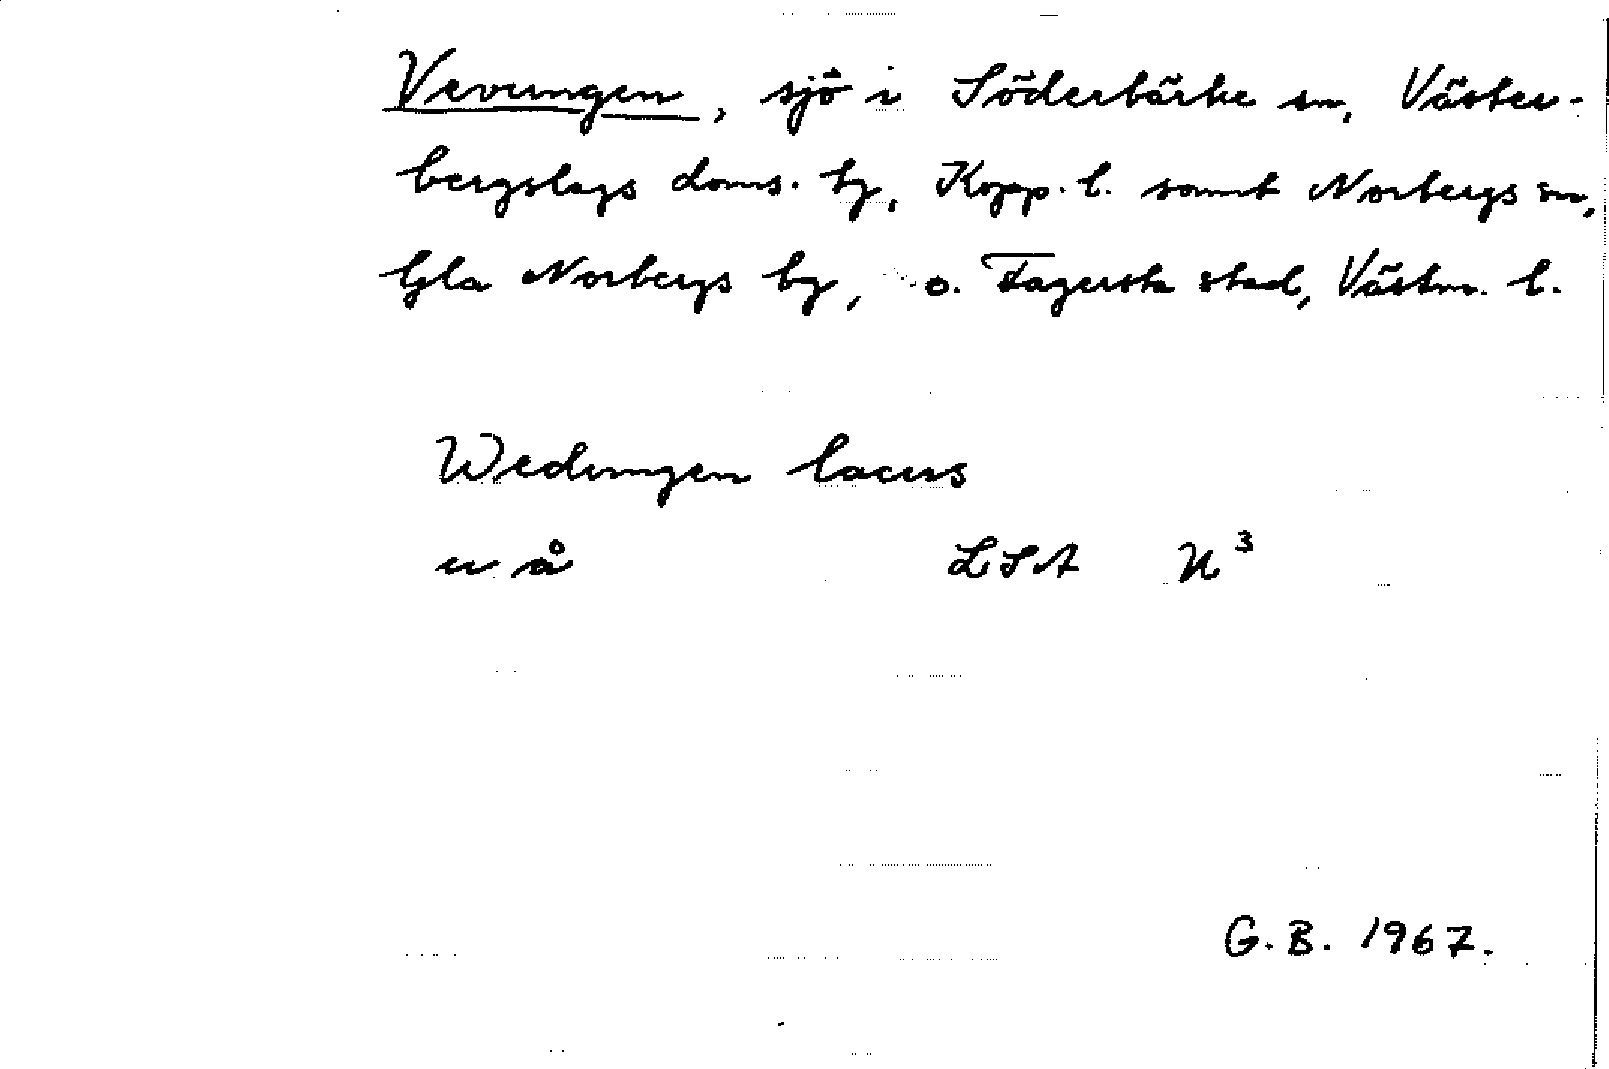 Vevungen, sjö i Söderbärke sn, Väster-
bergslags doms. hg, Kopp. l. samt Norbergs sn,
Gla Norbergs bg, o. Fagersta stad, Västm. l.
Wedungen lacus
u å LSA U³
G. B. 1967.